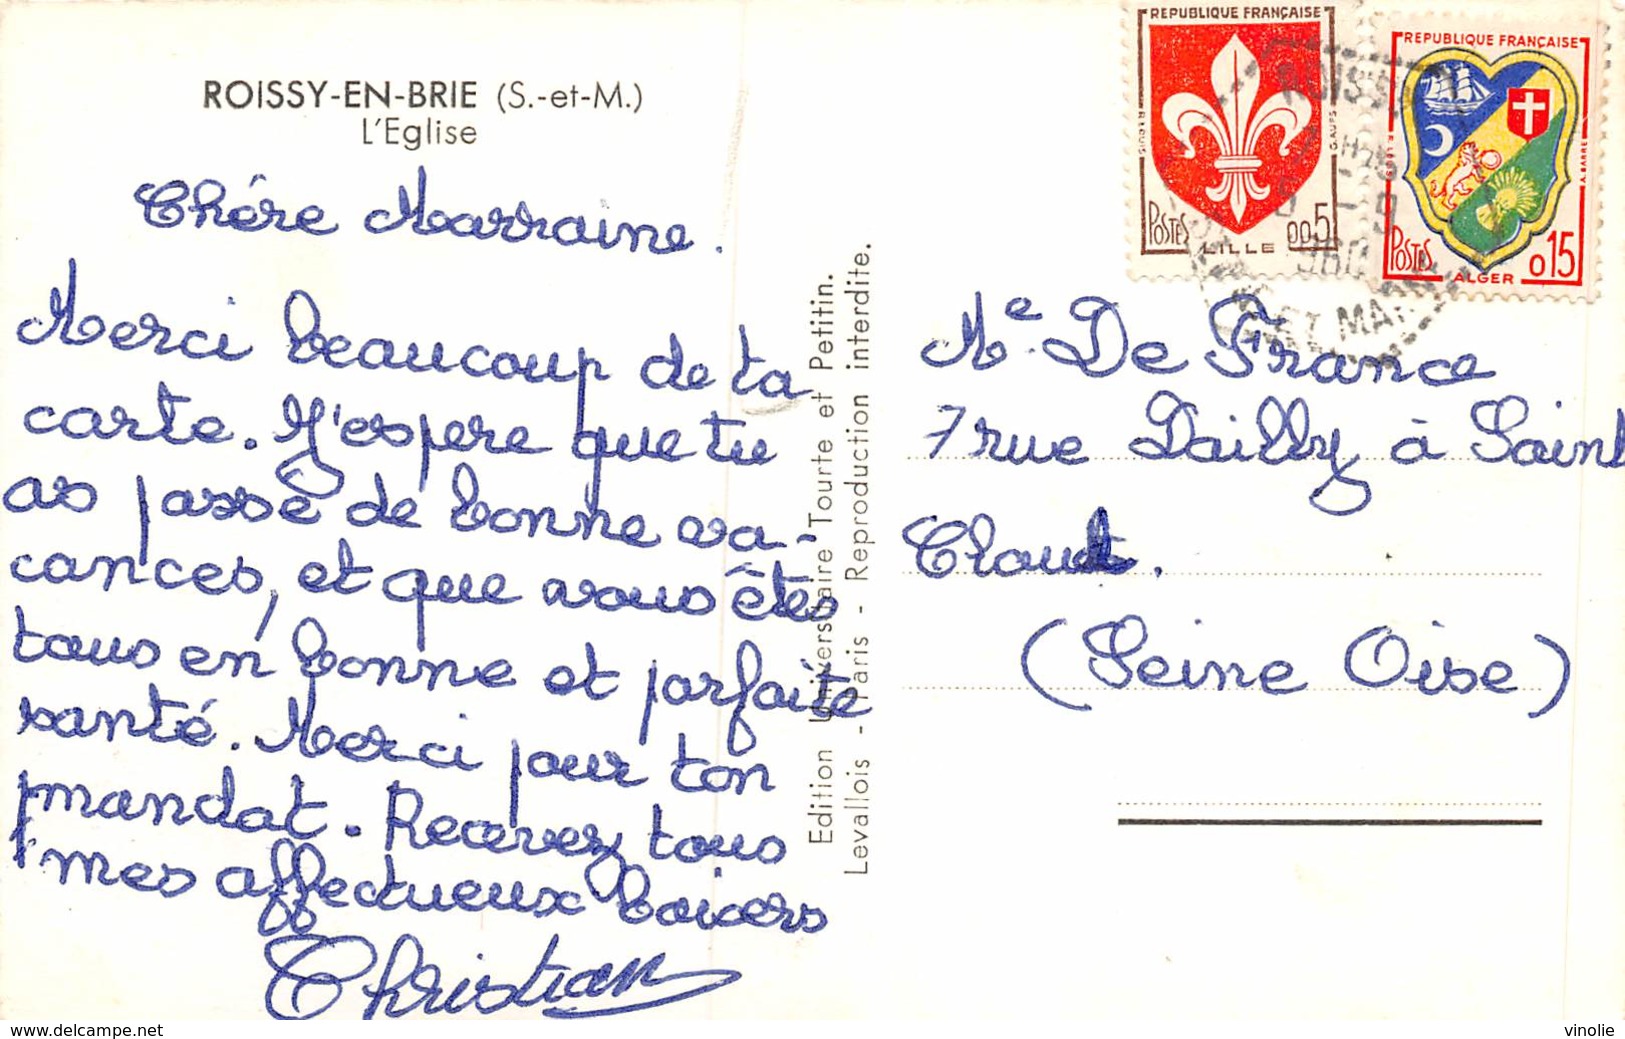 ROISSY-EN-BRIE (S.-et-M.)
L'Eglise
Chére Marraine.
Merci beaucoup de ta
carte. J'espere que tu
as passé de bonne va-
cances, et que vous êtes
tous en bonne et parfaite
santé. Merci pour ton
mandat. Recevez tous
mes affectueux baisers
Christian
Edition Universitaire Tourte et Petitin.
Levallois - Paris - Reproduction interdite.
REPUBLIQUE FRANÇAISE
POSTES
LILLE
005
REPUBLIQUE FRANÇAISE
POSTES
ALGER
015
ROISSY
960
ET MAR
Me. De France
7 rue Dailly à Saint
Cloud.
(Seine Oise)
www.delcampe.net
vinolie